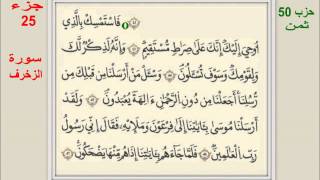 حزب 50
ثمن
جزء
25
سورة
الزخرف
فَاسْتَمْسِكْ بِالَّذِي
أُوحِيَ إِلَيْكَ إِنَّكَ عَلَىٰ صِرَاطٍ مُّسْتَقِيمٍ وَإِنَّهُ لَذِكْرٌ لَّكَ
وَلِقَوْمِكَ وَسَوْفَ تُسْـَٔلُونَ وَسْـَٔلْ مَنْ أَرْسَلْنَا مِن قَبْلِكَ مِن
رُّسُلِنَا أَجَعَلْنَا مِن دُونِ الرَّحْمَٰنِ ءَالِهَةً يُعْبَدُونَ وَلَقَدْ
أَرْسَلْنَا مُوسَىٰ بِـَٔايَٰتِنَا إِلَىٰ فِرْعَوْنَ وَمَلَإِيْهِ فَقَالَ إِنِّي رَسُولُ
رَبِّ الْعَٰلَمِينَ فَلَمَّا جَاءَهُم بِـَٔايَٰتِنَا إِذَا هُم مِّنْهَا يَضْحَكُونَ